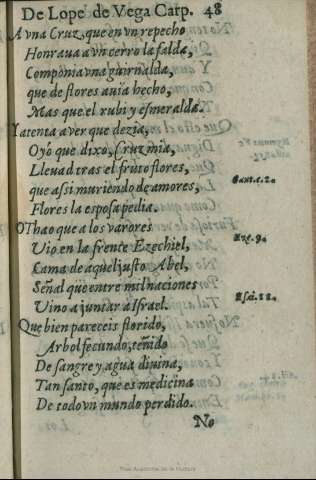 De Lope de Vega Carp. 48
A vna Cruz, que en vn repecho
Honraua a vn cerro la falda,
Componia vna guirnalda,
que de flores auia hecho,
Mas que el rubi y esmeralda.
Y atenta a ver que dezia,
Oyò que dixo, Cruz mia,
Lleuad tras el fruto flores,
que assi muriendo de amores,
Cant. 2.
Flores la esposa pedia.
O Thao que a los varones
Vio en la frente Ezechiel,
Eze. 9.
Cama de aquel justo Abel,
Señal que entre mil naciones
Vino a juntar a Israel.
Esai. 11.
Que bien pareceis florido,
Arbol fecundo, teñido
De sangre y agua diuina,
Tan santo, que es medicina
De todo vn mundo perdido.
No